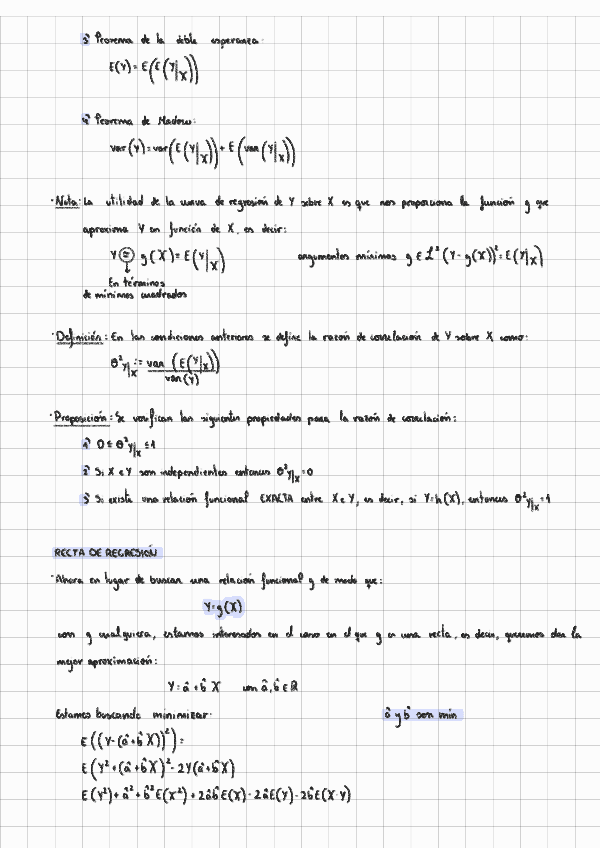 3º Teorema de la doble esperanza:
E(Y) = E(E(Y|X))
4º Teorema de Madow:
var(Y) = var(E(Y|X)) + E(var(Y|X))
·Nota: La utilidad de la curva de regresión de Y sobre X es que nos proporciona la función g que
aproxima Y en función de X, es decir:
Y ≅ g(X) = E(Y|X) argumentos mínimos g ∈ L² (Y - g(X))² = E(Y|X)
En términos
de mínimos cuadrados
·Definición: En las condiciones anteriores se define la razón de correlación de Y sobre X como:
θ²Y|X := var(E(Y|X)) / var(Y)
·Proposición: Se verifican las siguientes propiedades para la razón de correlación:
1º 0 ≤ θ²Y|X ≤ 1
2º Si X e Y son independientes entonces θ²Y|X = 0
3º Si existe una relación funcional EXACTA entre X e Y, es decir, si Y = h(X), entonces θ²Y|X = 1
RECTA DE REGRESIÓN
·Ahora en lugar de buscar una relación funcional g de modo que:
Y = g(X)
con g cualquiera, estamos interesados en el caso en el que g es una recta, es decir, queremos dar la
mejor aproximación:
Y = â + b̂ X con â, b̂ ∈ ℝ
Estamos buscando minimizar: â y b̂ son min
E((Y - (â + b̂X))²) =
E(Y² + (â + b̂X)² - 2Y(â + b̂X)
E(Y²) + â² + b̂² E(X²) + 2âb̂E(X) - 2âE(Y) - 2b̂E(X·Y)